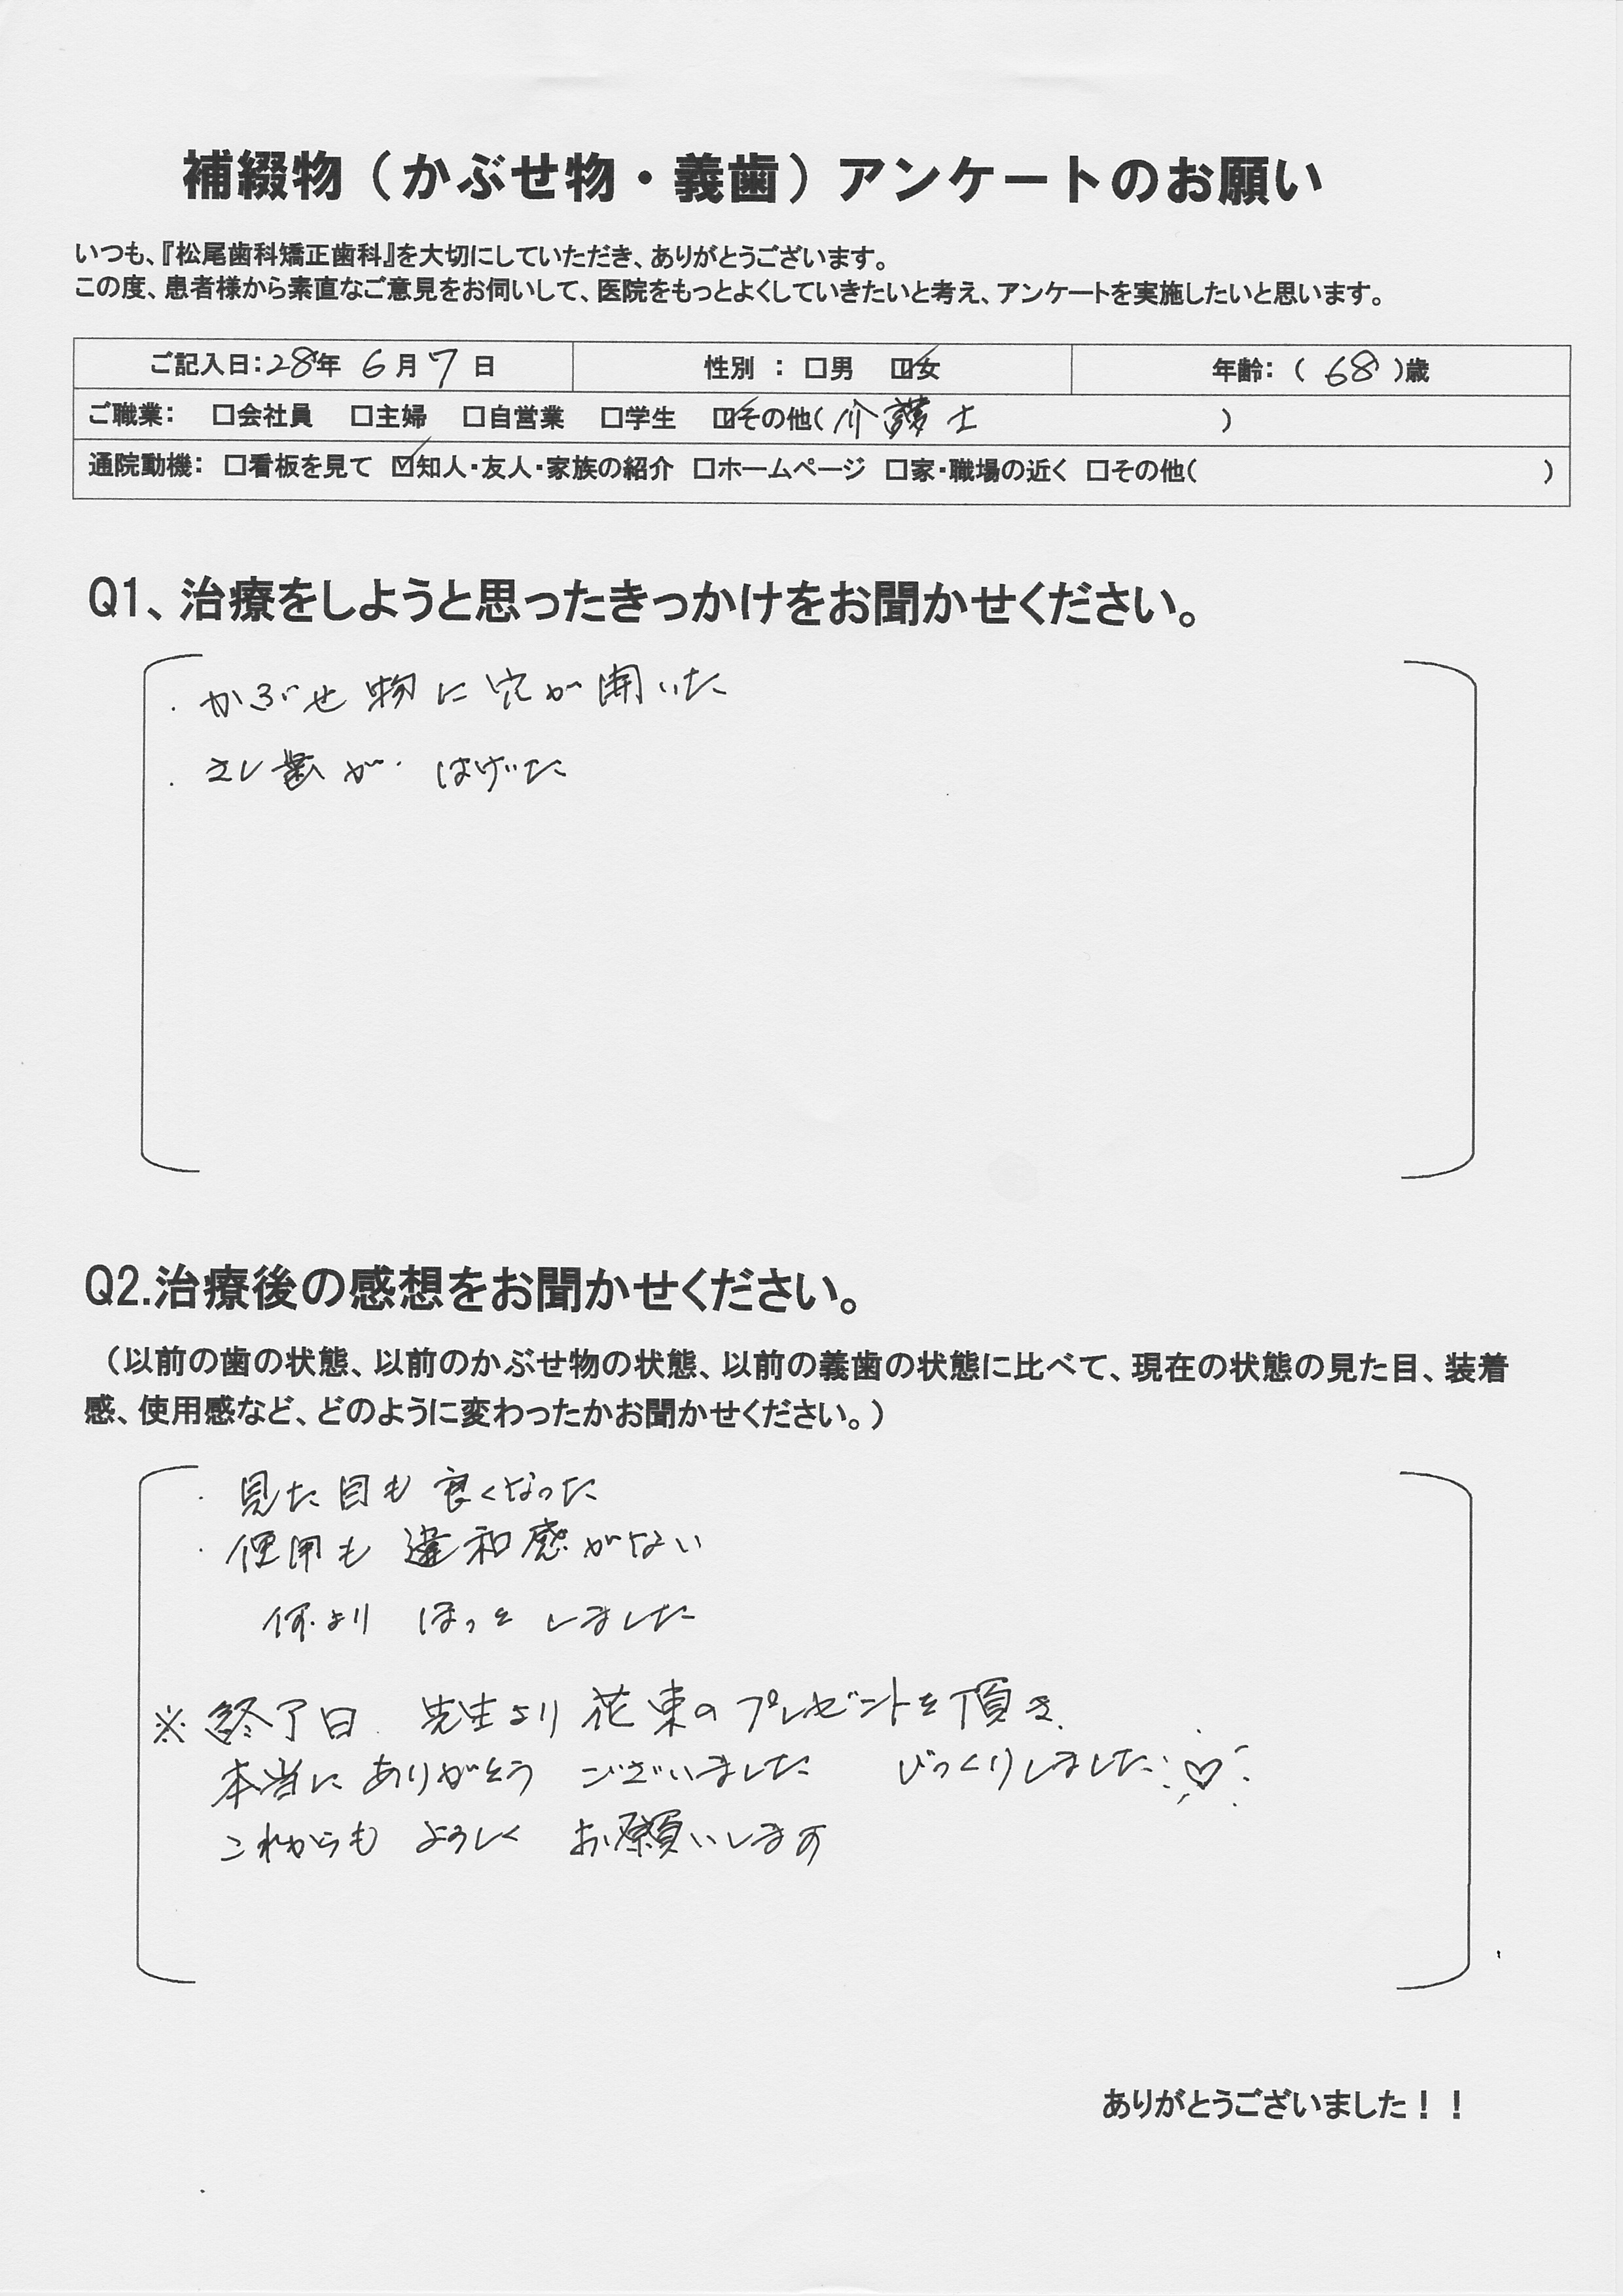 補綴物（かぶせ物・義歯）アンケートのお願い
いつも、『松尾歯科矯正歯科』を大切にしていただき、ありがとうございます。
この度、患者様から素直なご意見をお伺いして、医院をもっとよくしていきたいと考え、アンケートを実施したいと思います。
ご記入日：28年 6月 7日 性別 ： □男 ☑女 年齢：（ 68 ）歳
ご職業： □会社員 □主婦 □自営業 □学生 ☑その他（介護士 ）
通院動機： □看板を見て ☑知人・友人・家族の紹介 □ホームページ □家・職場の近く □その他（ ）
Q1、治療をしようと思ったきっかけをお聞かせください。
・かぶせ物に穴が開いた
・さし歯が はげた
Q2.治療後の感想をお聞かせください。
（以前の歯の状態、以前のかぶせ物の状態、以前の義歯の状態に比べて、現在の状態の見た目、装着
感、使用感など、どのように変わったかお聞かせください。）
・見た目も良くなった
・使用も違和感がない
何より ほっとしました
※終了日 先生より花束のプレゼントを頂き、
本当にありがとう ございました びっくりしました♡
これからも よろしく お願いします
ありがとうございました！！